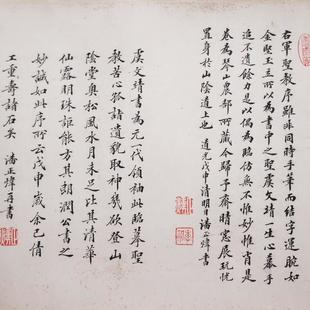 右軍聖教序雖非同時手筆而結字運腕如
金堅玉立所以為書中之聖虞文靖一生心慕手
追不遺餘力是以偶為臨仿無不惟妙惟肖是
卷為琴山農部所藏今歸予齋晴窻展玩忧
置身於山陰道上也 道光戊申清明日潘正煒書
虞文靖書為元一代領袖此臨摹聖
教苦心孤詣遺貌取神幾欲登山
陰堂奧松風水月未足比其清華
仙露明珠詎能方其朗潤公書之
妙誠如此序所云戊申歲余已倩
工重壽諸石矣 潘正煒再書